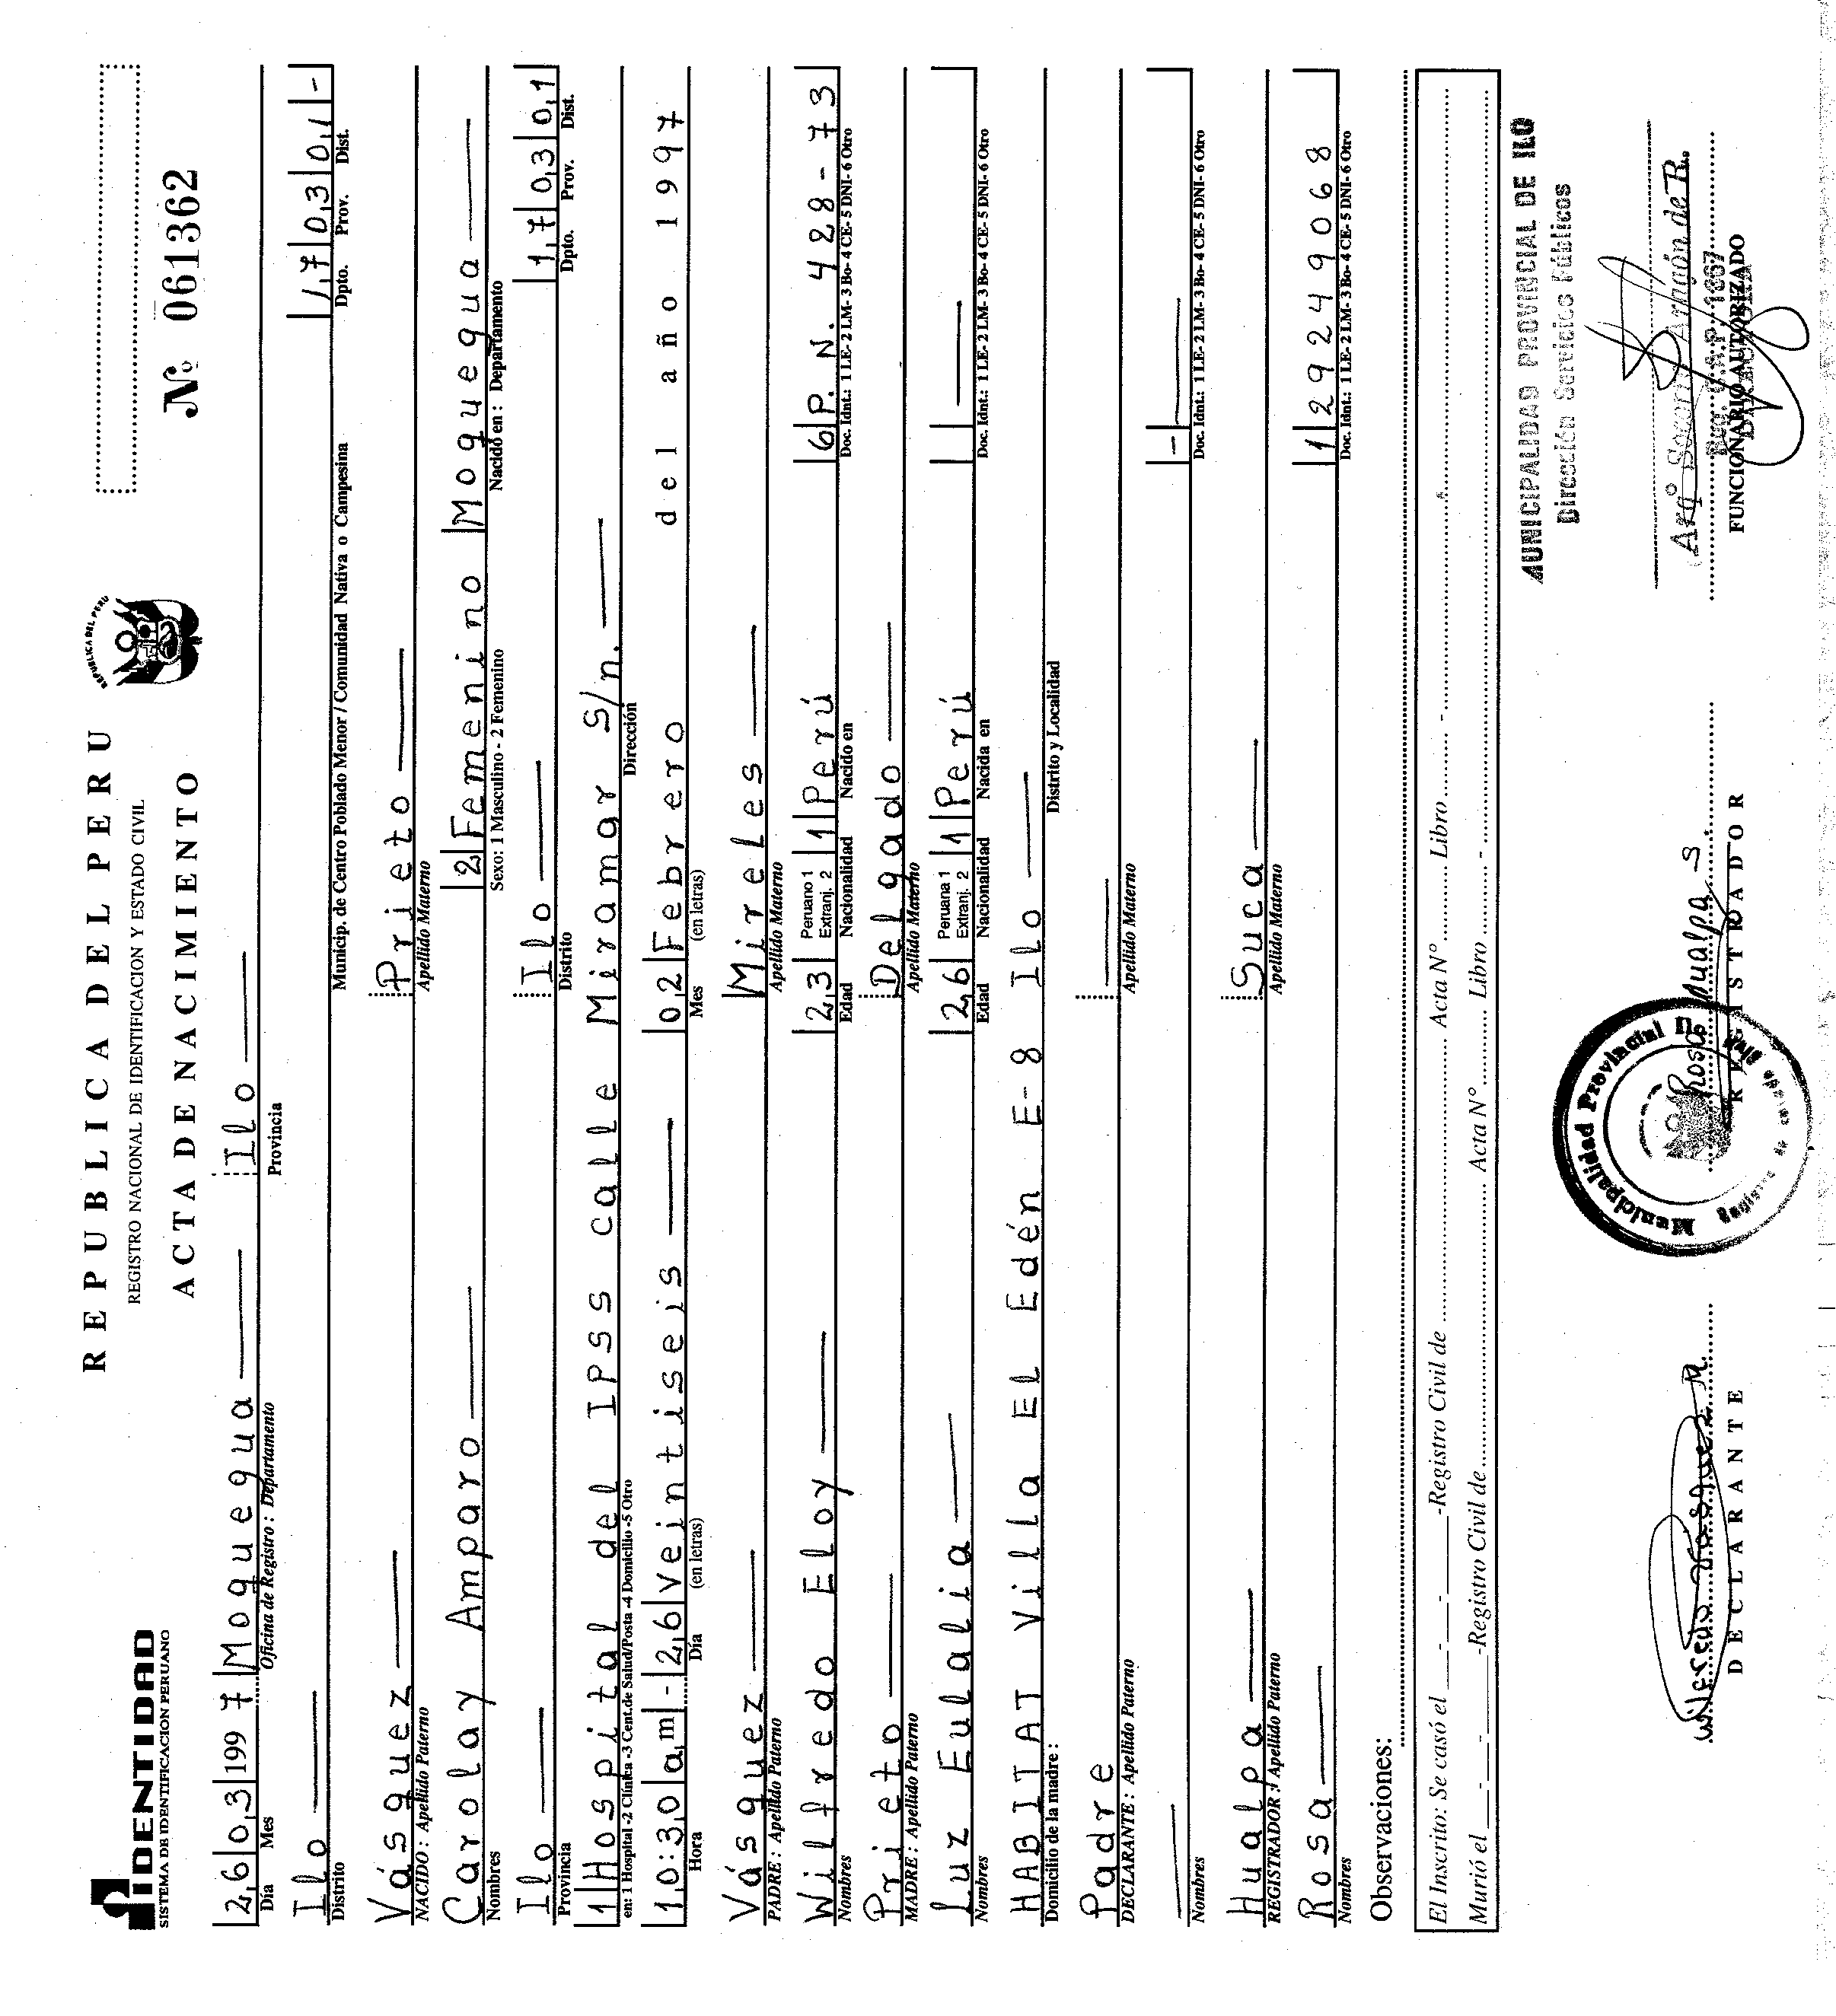 REPUBLICA DEL PERU
REPUBLICA DEL PERU
IDENTIDAD
SISTEMA DE IDENTIFICACION PERUANO
REGISTRO NACIONAL DE IDENTIFICACION Y ESTADO CIVIL
ACTA DE NACIMIENTO
Nº 061362
26 03 1997 Moquegua Ilo
Día Mes Oficina de Registro : Departamento Provincia
Ilo 17 03 01 -
Distrito Municip. de Centro Poblado Menor / Comunidad Nativa o Campesina Dpto. Prov. Dist.
Vásquez Prieto
NACIDO : Apellido Paterno Apellido Materno
Carolay Amparo 2 Femenino Moquegua
Nombres Sexo: 1 Masculino - 2 Femenino Nacido en : Departamento
Ilo Ilo 17 03 01
Provincia Distrito Dpto. Prov. Dist.
1 Hospital del IPSS calle Miramar S/n.
en: 1 Hospital -2 Clínica -3 Cent.de Salud/Posta -4 Domicilio -5 Otro Dirección
10:30 am - 26 veintiseis 02 Febrero del año 1997
Hora Día (en letras) Mes (en letras)
Vásquez Mireles
PADRE : Apellido Paterno Apellido Materno
Wilfredo Eloy 23 Peruano 1 Extranj. 2 1 Perú 6 P. N. 428-73
Nombres Edad Nacionalidad Nacido en Doc. Idnt.: 1 LE- 2 LM- 3 Bo- 4 CE- 5 DNI- 6 Otro
Prieto Delgado
MADRE : Apellido Paterno Apellido Materno
Luz Eulalia 26 Peruana 1 Extranj. 2 1 Perú
Nombres Edad Nacionalidad Nacida en Doc. Idnt.: 1 LE- 2 LM- 3 Bo- 4 CE- 5 DNI- 6 Otro
HABITAT Villa El Edén E-8 Ilo
Domicilio de la madre : Distrito y Localidad
Padre
DECLARANTE : Apellido Paterno Apellido Materno
-
Nombres Doc. Idnt.: 1 LE- 2 LM- 3 Bo- 4 CE- 5 DNI- 6 Otro
Hualpa Suca
REGISTRADOR : Apellido Paterno Apellido Materno
Rosa 1 29249068
Nombres Doc. Idnt.: 1 LE- 2 LM- 3 Bo- 4 CE- 5 DNI- 6 Otro
Observaciones:
El Inscrito: Se casó el - - -Registro Civil de Acta Nº Libro -
Murió el - - -Registro Civil de Acta Nº Libro -
MUNICIPALIDAD PROVINCIAL DE ILO
Dirección Servicios Públicos
Municipalidad Provincial De
Wilfredo Vasquez M.
Rosa Hualpa S.
Arqº Socorro de R.
Reg. C.A.P. 1667
DECLARANTE REGISTRADOR FUNCIONARIO AUTORIZADO